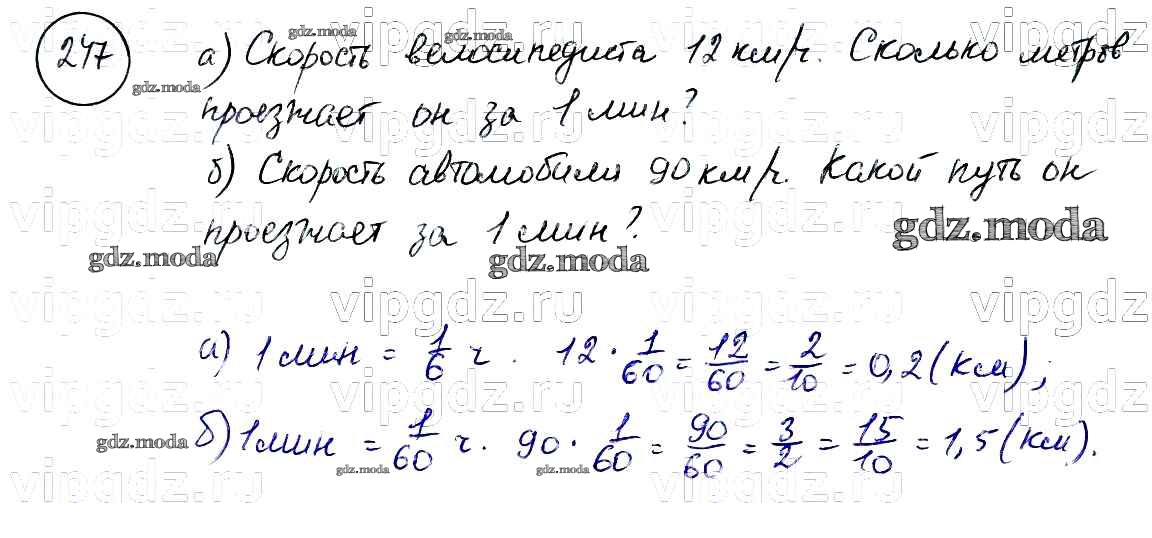 247 а) Скорость велосипедиста 12 км/ч. Сколько метров
проезжает он за 1 мин?
б) Скорость автомобиля 90 км/ч. Какой путь он
проезжает за 1 мин?
а) 1 мин = 1/6 ч. 12 · 1/60 = 12/60 = 2/10 = 0,2 (км);
б) 1 мин = 1/60 ч. 90 · 1/60 = 90/60 = 3/2 = 15/10 = 1,5 (км).
gdz.moda
vipgdz.ru